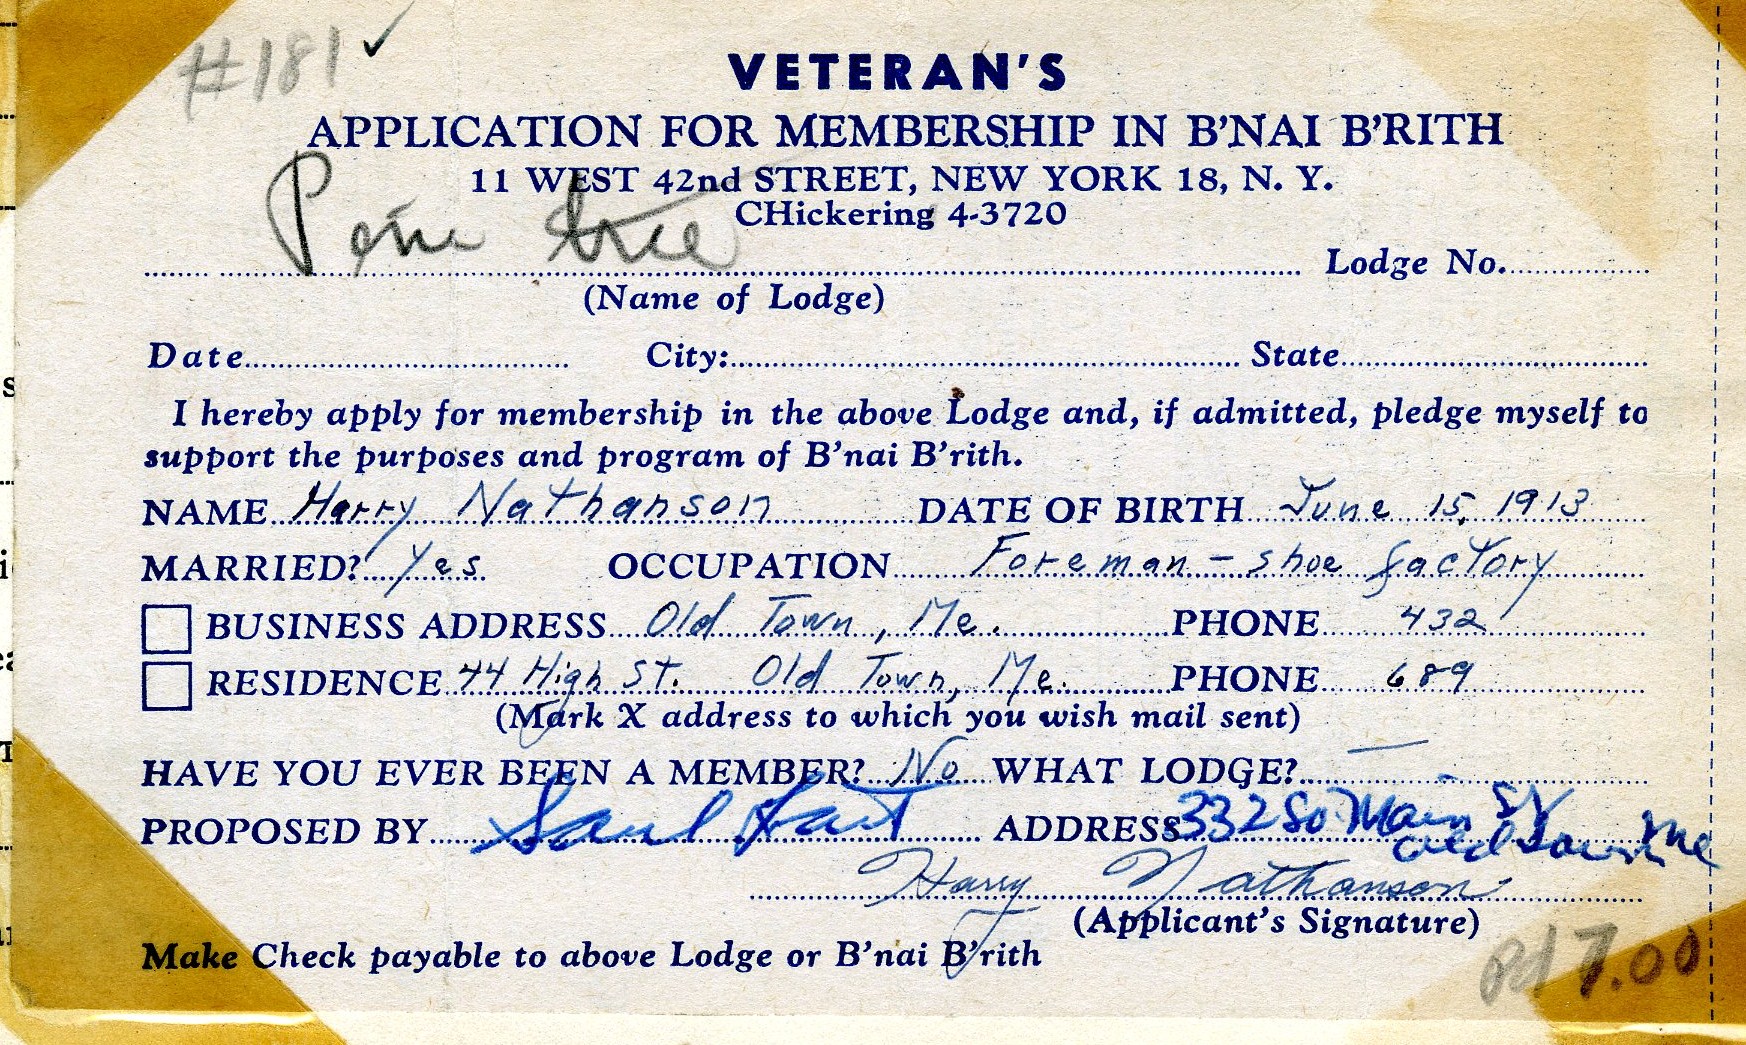 #181 ✓
VETERAN'S
APPLICATION FOR MEMBERSHIP IN B'NAI B'RITH
11 WEST 42nd STREET, NEW YORK 18, N. Y.
CHickering 4-3720
Pine tree Lodge No.
(Name of Lodge)
Date City: State
I hereby apply for membership in the above Lodge and, if admitted, pledge myself to
support the purposes and program of B'nai B'rith.
NAME Harry Nathanson DATE OF BIRTH June 15, 1913
MARRIED? Yes OCCUPATION Foreman - shoe factory
BUSINESS ADDRESS Old Town, Me. PHONE 432
RESIDENCE 44 High St. Old Town, Me. PHONE 689
(Mark X address to which you wish mail sent)
HAVE YOU EVER BEEN A MEMBER? No WHAT LODGE? —
PROPOSED BY Saul Hart ADDRESS 332 So. Main St
Old Town Me
Harry Nathanson
(Applicant's Signature)
Make Check payable to above Lodge or B'nai B'rith
Pd 7.00